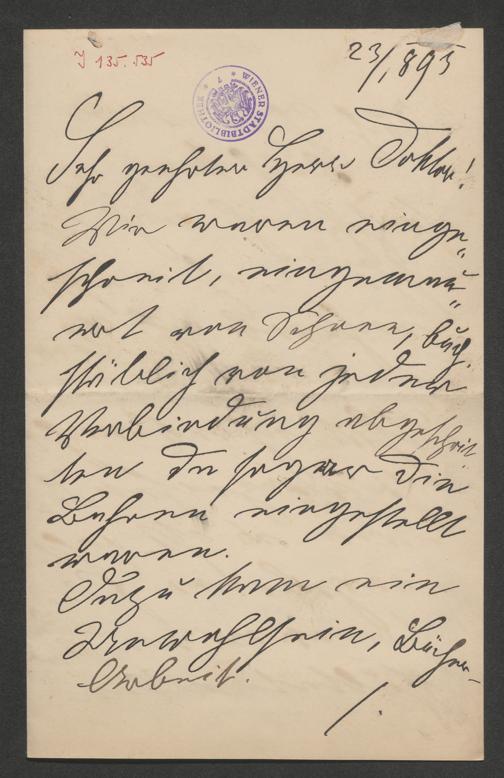 J 135.535
23/1 895
WIENER STADTBIBLIOTHEK
Sehr geehrter Herr Doktor!
Wir waren einge„
schneit, eingemau„
ert von Schnee, buch
stäblich von jeder
Verbindung abgeschnit
ten da sogar die
Bahnen eingestellt
waren.
Dazu kam ein
Unwohlsein, Bücher-
Arbeit.
/.